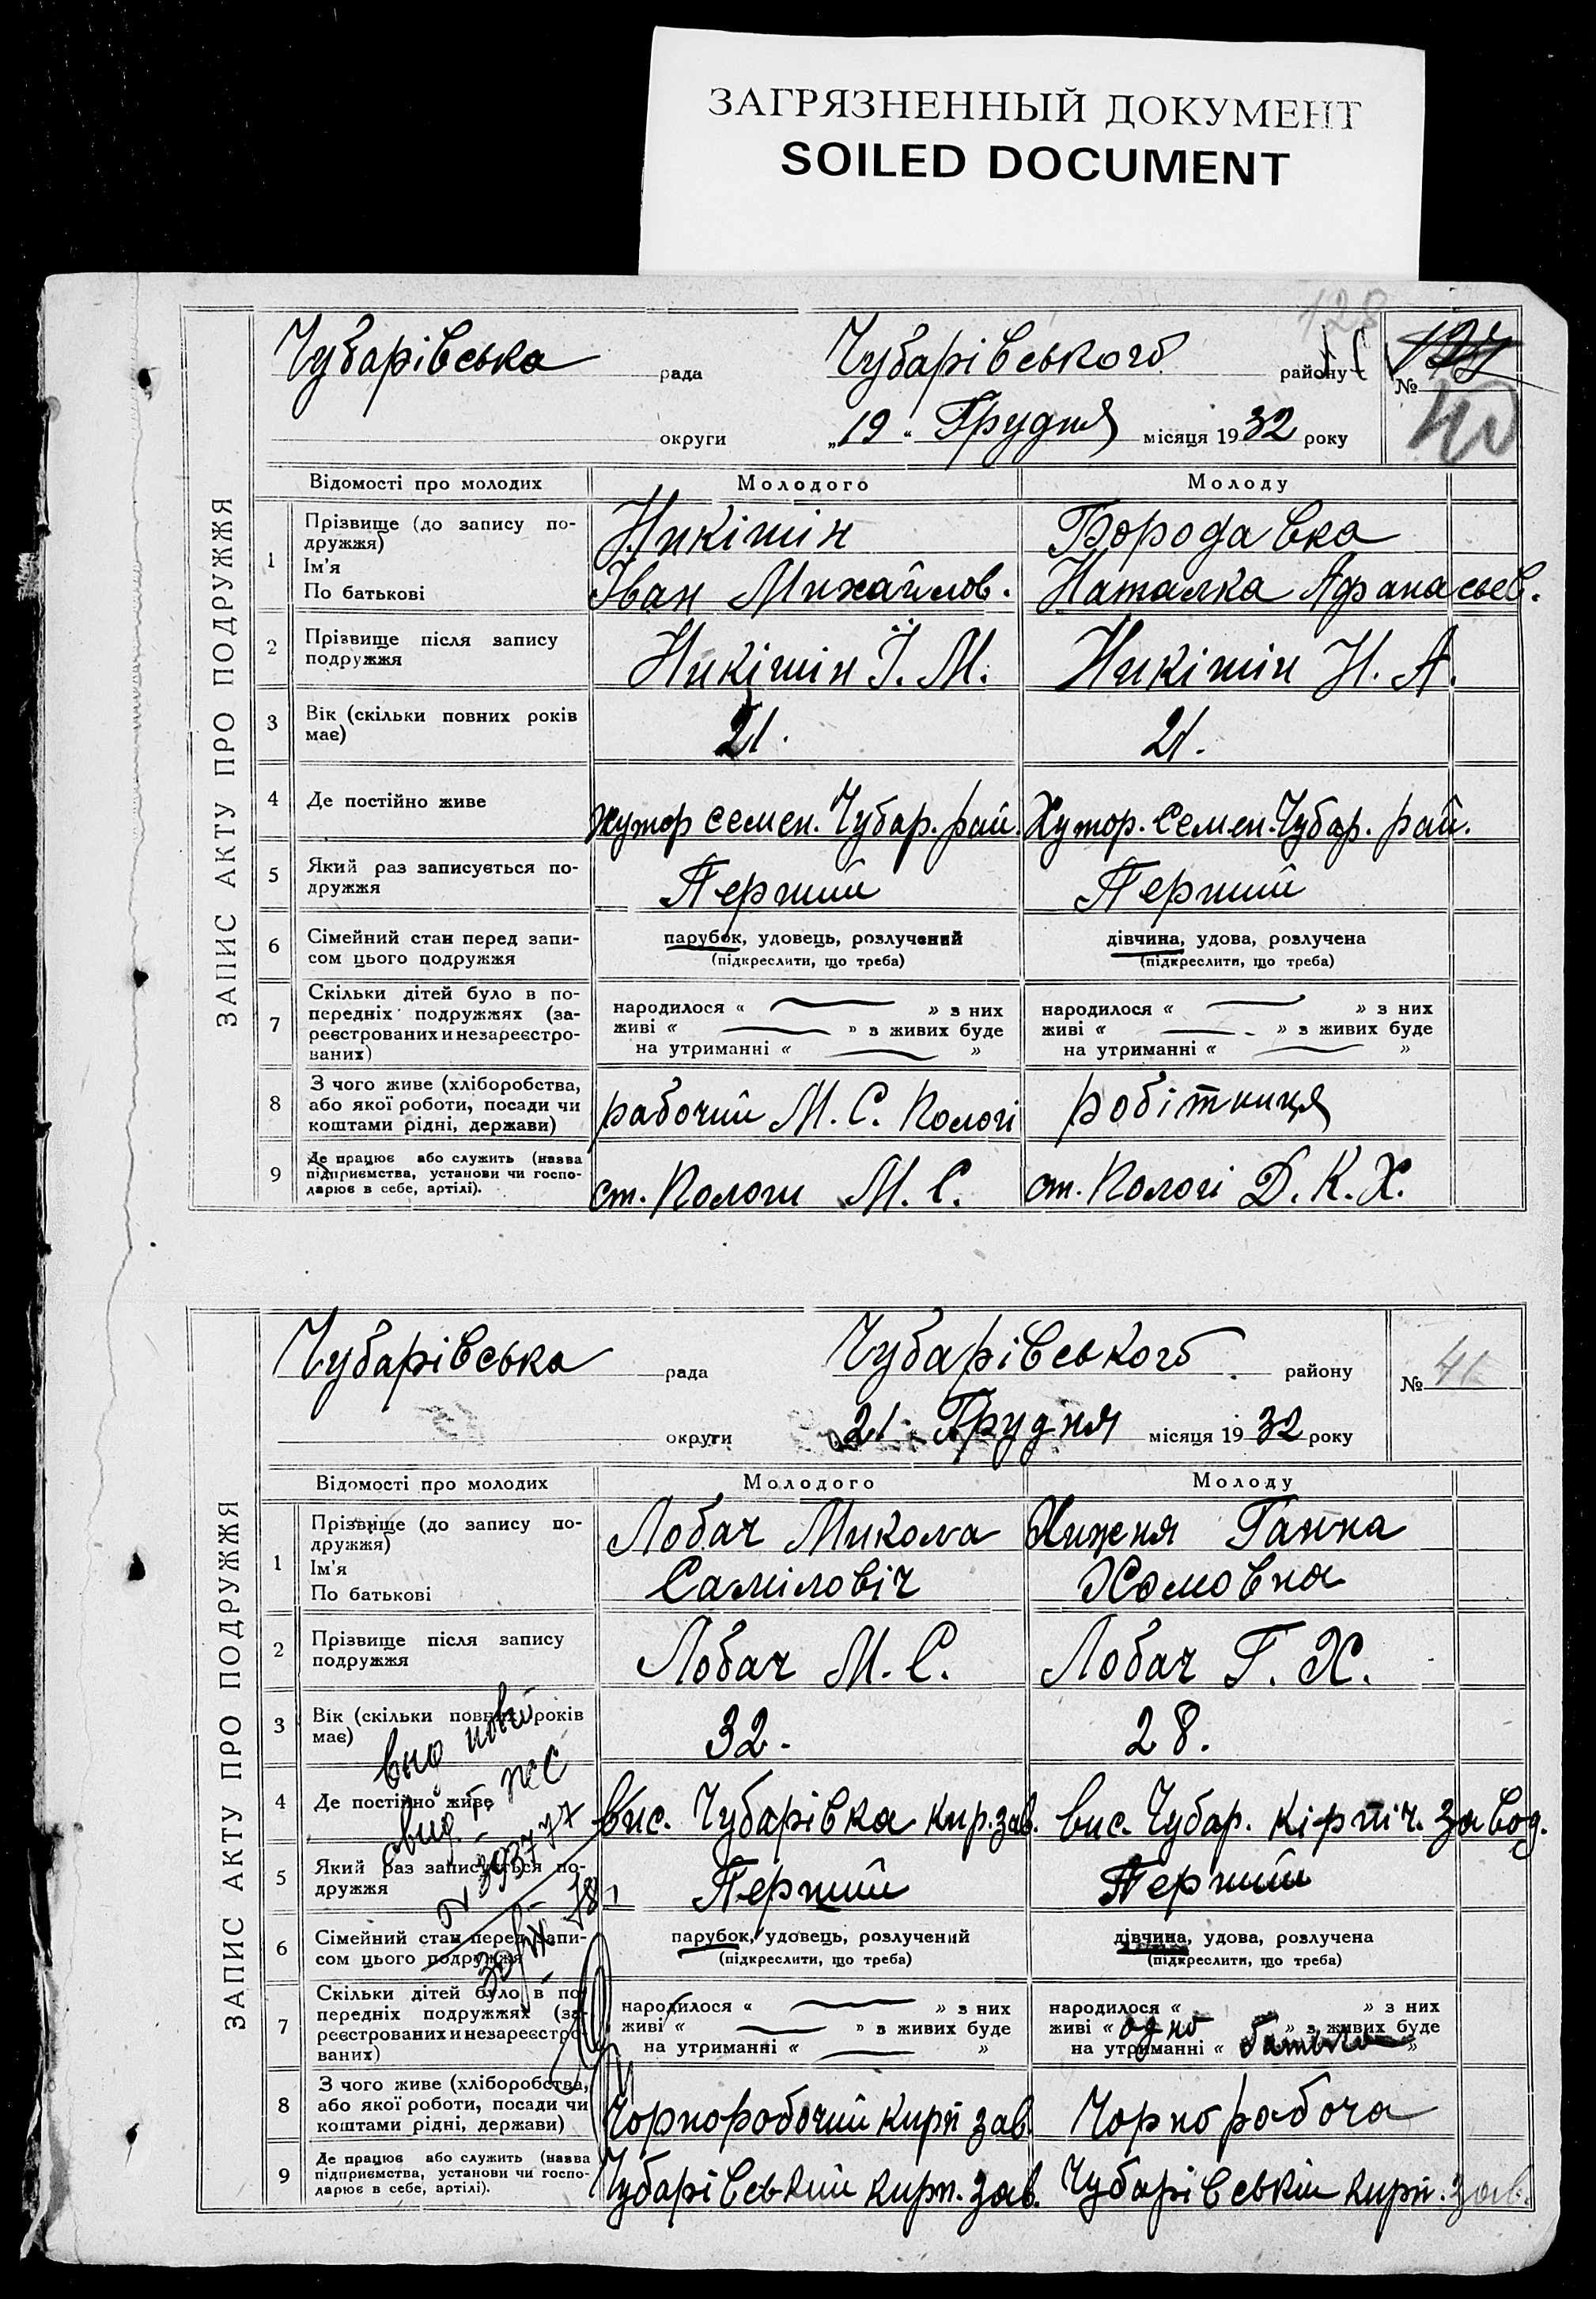 ЗАГРЯЗНЕННЫЙ ДОКУМЕНТ
SOILED DOCUMENT
128
ЗАПИС АКТУ ПРО ПОДРУЖЖЯ
Чубарівська рада Чубарівського району № 40
округи „19“ Грудня місяця 1932 року
Відомості про молодих Молодого Молоду
1 Прізвище (до запису по-
дружжя) Нікітін Бородавка
Ім'я
По батькові Іван Михайлов. Наталка Афанасьев.
2 Прізвище після запису
подружжя Нікітін Ї. М. Нікітін Н. А.
3 Вік (скільки повних років
має) 21. 21.
4 Де постійно живе хутор семен. Чубар. рай. Хутор. Семен. Чубар. рай.
5 Який раз записується по-
дружжя Перший Перший
6 Сімейний стан перед запи-
сом цього подружжя парубок, удовець, розлучений дівчина, удова, розлучена
(підкреслити, що треба) (підкреслити, що треба)
7 Скільки дітей було в по-
передніх подружжях (за-
реєстрованих и незареєстро-
ваних)
народилося « » з них народилося « » з них
живі « » з живих буде живі « » з живих буде
на утриманні « » на утриманні « »
8 З чого живе (хліборобства,
або якої роботи, посади чи
коштами рідні, держави) рабочий М. С. Пологі робітниця
9 Де працює або служить (назва
підприємства, установи чи госпо-
дарює в себе, артілі). ст. Пологи М. С. ст. Пологі Д. К. Х.
ЗАПИС АКТУ ПРО ПОДРУЖЖЯ
Чубарівська рада Чубарівського району № 41
округи „21“ Грудня місяця 1932 року
Відомості про молодих Молодого Молоду
1 Прізвище (до запису по-
дружжя) Лобач Микола Хижня Ганна
Ім'я
По батькові Саміловіч Хомовна
2 Прізвище після запису
подружжя Лобач М. С. Лобач Г. Х.
3 Вік (скільки повних років
має) 32. 28.
4 Де постійно живе вис. Чубарівка кир. зав. вис. Чубар. кірпіч. завод.
5 Який раз записується по-
дружжя Перший Перший
6 Сімейний стан перед запи-
сом цього подружжя парубок, удовець, розлучений дівчина, удова, розлучена
(підкреслити, що треба) (підкреслити, що треба)
7 Скільки дітей було в по-
передніх подружжях (за-
реєстрованих и незареєстро-
ваних)
народилося « » з них народилося « » з них
живі « » з живих буде живі « одно » з живих буде
на утриманні « » на утриманні « батька »
8 З чого живе (хліборобства,
або якої роботи, посади чи
коштами рідні, держави) Чорноробочий кирп зав. Чорно рабоча
9 Де працює або служить (назва
підприємства, установи чи госпо-
дарює в себе, артілі). Чубарівський кирп. зав. Чубарівській кирп. зав.